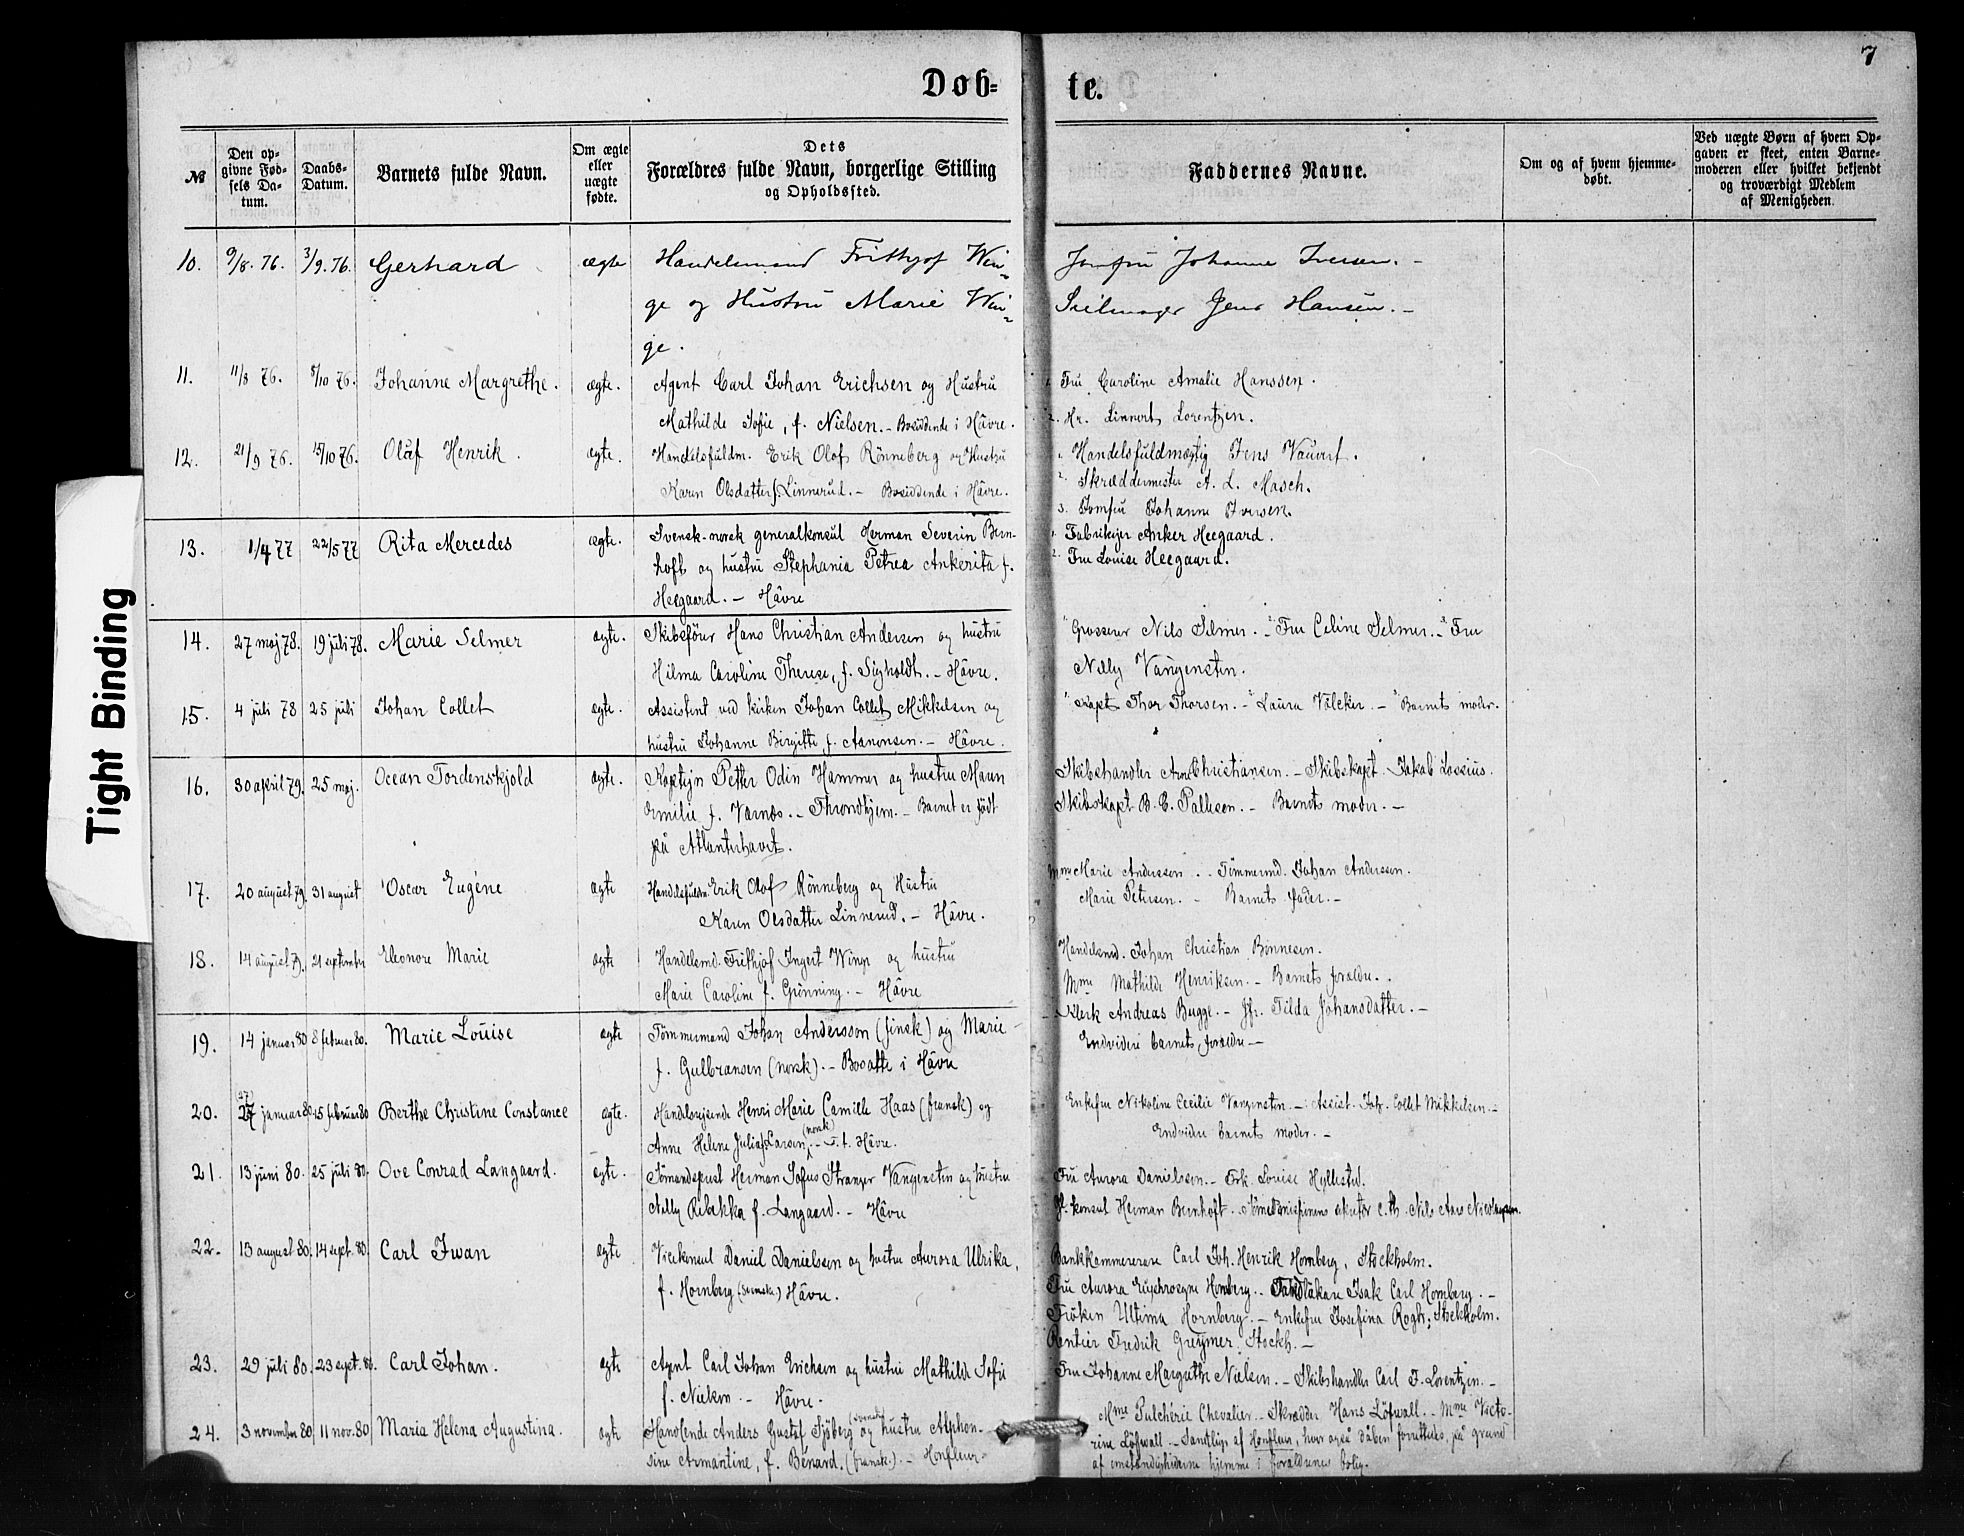 7
Døb= te.
№
Den op-
givne Fød-
sels Da-
tum.
Daabs-
Datum.
Barnets fulde Navn.
Om ægte
eller
uægte
fødte.
Dets
Forældres fulde Navn, borgerlige Stilling
og Opholdssted.
Faddernes Navne.
Om og af hvem hjemme-
døbt.
Ved uægte Børn af hvem Op-
gaven er skeet, enten Barne-
moderen eller hvilket bekjendt
og troværdigt Medlem
af Menigheden.
10. 9/8. 76. 3/9. 76. Gerhard ægte Handelsmand Frithjof Win- Jomfru Johanne Iversen. -
ge og Hustru Marie Win- Seilmager Jens Hansen. -
ge.
11. 11/8 76. 8/10 76. Johanne Margrethe. ægte. Agent Carl Johan Erichsen og Hustru 1. Fru Caroline Amalie Hanssen.
Mathilde Sofie, f. Nielsen. - Bosiddende i Hâvre. 2. Hr. Linnert Lorentzen.
12. 21/9 76. 15/10 76. Olaf Henrik. ægte. Handelsfuldm. Erik Olof Rönneberg og Hustru 1. Handelsfuldmægtig Jens
Karen Olsdatter f. Linnerud. - Bosiddende i Hâvre. 2. Skræddermester A. L. Masch.
3. Jomfru Johanne Iversen.
13. 1/4 77 22/5 77 Rita Mercedes ægte. Svensk-norsk generalkonsul Herman Severin Bern- 1. Fabrikejer Anker Heegaard.
hoft og hustru Stephania Petrea Ankerita f. 2. Fru Louise Heegaard.
Heegaard. - Hâvre
14. 27 maj 78. 19 juli 78. Marie Selmer ægte. Skibsförer Hans Christian Andersen og hustru 1 Grosserer Nils Selmer. - 2 Fru Celine Selmer. - 3 Fru
Hilma Caroline Therese, f. Sigholdt. - Hâvre. Nelly Vangensten.
15. 4 juli 78 25 juli Johan Collet ægte. Assistent ved kirken Johan Collet Mikkelsen og 1 Kapt. Thor Thorsen. - 2 Laura Völcker. - 3 Barnets moder.
hustru Johanne Birgitte f. Aanonsen. - Hâvre.
16. 30 april 79. 25 maj. Ocean Tordenskjold ægte. Kaptejn Petter Odin Hammer og hustru Maren Skibshandler Christiansen. - Skibskapt. Jakob Lossius.
Emilie f. Værnes. - Throndhjem. - Barnet er födt Skibskapt B. E. Pallesen. - Barnets moder. -
på Atlanterhavet.
17. 20 august 79. 31 august Oscar Eugéne ægte Handelsfuldm. Erik Olof Rönneberg og Hustru Mme Marie Andersson. - Tömmermd. Johan Andersson.
Karen Olsdatter Linnerud. - Hâvre. Marie Petersen. - Barnets fader. -
18. 14 august 79. 21 september Eleonore Marie ægte Handelsmd. Frithjof Ingert Winge og hustru Handelsmd. Johan Christian Bonnesen.
Marie Caroline f. Grönning. - Hâvre Mme Mathilde Henriksen. - Barnets forældre. -
19. 14 januar 80 8 februar 80. Marie Louise ægte Tömmermand Johan Andersson (finsk) og Marie Klerk Andreas Bugge. - Jfr. Tilda Johansdatter. -
f. Gulbransen (norsk). - Bosatte i Hâvre Endvidere barnets forældre -
20. 27 januar 80. 15 februar 80 Berthe Christine Constance ægte. Handelsrejsende Henri Marie Camille Haas (fransk) og Enkefru Nikoline Cecilie Vangensten. - Assist. Joh. Collet Mikkelsen. -
Anne Helene Julia f. Larsen (norsk). - F. t. Hâvre. Endvidere barnets moder. -
21. 13 juni 80. 25 juli 80. Ove Conrad Langaard. ægte. Sömandsprest Herman Sofus Stranger Vangensten og hustru Fru Aurora Danielsson. - Frk. Louise Hyllested.
Nelly Rebekka f. Langaard. - Hâvre Gl. konsul Herman Bernhoft. - Sömandsmissionens sekretær c. th. Nils Aars Nicolaysen.
22. 13 august 80. 14 sept. 80. Carl Iwan ægte Vicekonsul Daniel Danielsson og hustru Aurora Ulrika, Bankkammererare Carl Joh. Henrik Hornberg, Stockholm.
f. Hornberg (svenske) Hâvre. Fru Aurora Euphrosyne Hornberg. - Tandläkare Isak Carl Hornberg. -
Fröken Ultima Hornberg. - Enkefru Josefina Rogh; Stockholm.
Rentier Fredrik Greymer, Stockh. -
23. 29 juli 80. 23 sept. 80. Carl Johan. ægte Agent Carl Johan Erichsen og hustru Mathilde Sofie Fru Johanne Margrethe Nielsen. - Skibshandler Carl F. Lorentzen. -
f. Nielsen. - Hâvre.
24. 3 november 80 11 nov. 80 Maria Helena Augustina. ægte Handlende Anders Gustaf Sjöberg (svensk) og hustru Alphon- Mme Pulchérie Chevalier. - Skrædder Hans Löfwall. - Mme Victo-
sine Armantine, f. Bénard. (fransk.). - Honfleur. rine Löfwall. - Samtlige af Honfleur, hvor også dåben forrettedes, på grund
af omstændighederne hjemme i forældrenes bolig.
Tight Binding